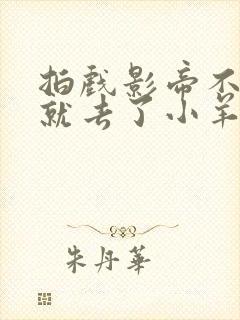 拍戏影帝不
就去了小羊
朱丹華